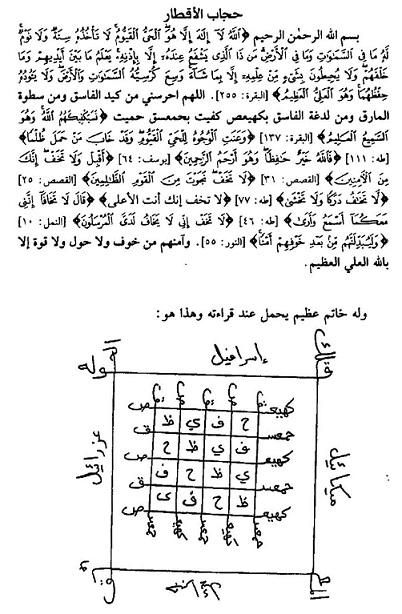 حجاب الأقطار
بسم الله الرحمٰن الرحيم ﴿اللَّهُ لَا إِلَهَ إِلَّا هُوَ الْحَيُّ الْقَيُّومُ لَا تَأْخُذُهُ سِنَةٌ وَلَا نَوْمٌ
لَّهُ مَا فِي السَّمَاوَاتِ وَمَا فِي الْأَرْضِ مَن ذَا الَّذِي يَشْفَعُ عِندَهُ إِلَّا بِإِذْنِهِ يَعْلَمُ مَا بَيْنَ أَيْدِيهِمْ وَمَا
خَلْفَهُمْ وَلَا يُحِيطُونَ بِشَيْءٍ مِّنْ عِلْمِهِ إِلَّا بِمَا شَاءَ وَسِعَ كُرْسِيُّهُ السَّمَاوَاتِ وَالْأَرْضَ وَلَا يَئُودُهُ
حِفْظُهُمَا وَهُوَ الْعَلِيُّ الْعَظِيمُ﴾ [البقرة: ٢٥٥]. اللهم احرسني من كيد الفاسق ومن سطوة
المارق ومن لدغة الفاسق بكهيعص كفيت بحمعسق حميت ﴿فَسَيَكْفِيكَهُمُ اللَّهُ وَهُوَ
السَّمِيعُ الْعَلِيمُ﴾ [البقرة: ١٣٧] ﴿وَعَنَتِ الْوُجُوهُ لِلْحَيِّ الْقَيُّومِ وَقَدْ خَابَ مَنْ حَمَلَ ظُلْمًا﴾
[طه: ١١١] ﴿فَاللَّهُ خَيْرٌ حَافِظًا وَهُوَ أَرْحَمُ الرَّاحِمِينَ﴾ [يوسف: ٦٤] ﴿أَقْبِلْ وَلَا تَخَفْ إِنَّكَ
مِنَ الْآمِنِينَ﴾ [القصص: ٣١] ﴿لَا تَخَفْ نَجَوْتَ مِنَ الْقَوْمِ الظَّالِمِينَ﴾ [القصص: ٢٥]
﴿لَّا تَخَافُ دَرَكًا وَلَا تَخْشَى﴾ [طه: ٧٧] ﴿لا تخف إنك أنت الأعلى﴾ ﴿قَالَ لَا تَخَافَا إِنَّنِي
مَعَكُمَا أَسْمَعُ وَأَرَى﴾ [طه: ٤٦] ﴿لَا تَخَفْ إِنِّي لَا يَخَافُ لَدَيَّ الْمُرْسَلُونَ﴾ [النمل: ١٠]
﴿وَلَيُبَدِّلَنَّهُم مِّن بَعْدِ خَوْفِهِمْ أَمْنًا﴾ [النور: ٥٥]. وآمنهم من خوف ولا حول ولا قوة إلا
بالله العلي العظيم.
وله خاتم عظيم يحمل عند قراءته وهذا هو:
إسرافيل
قولك
وله
ميكائيل
عزرائيل
كهيعـ ص
حمعسـ ق
كهيعـ ص
حمعسـ ق
كهيعـ ص
ح ف ي ظ
ف ي ظ ح
ي ظ ح ف
ظ ح ف ي
حمعسـ كهيعـ حمعسـ كهيعـ حمعسـ